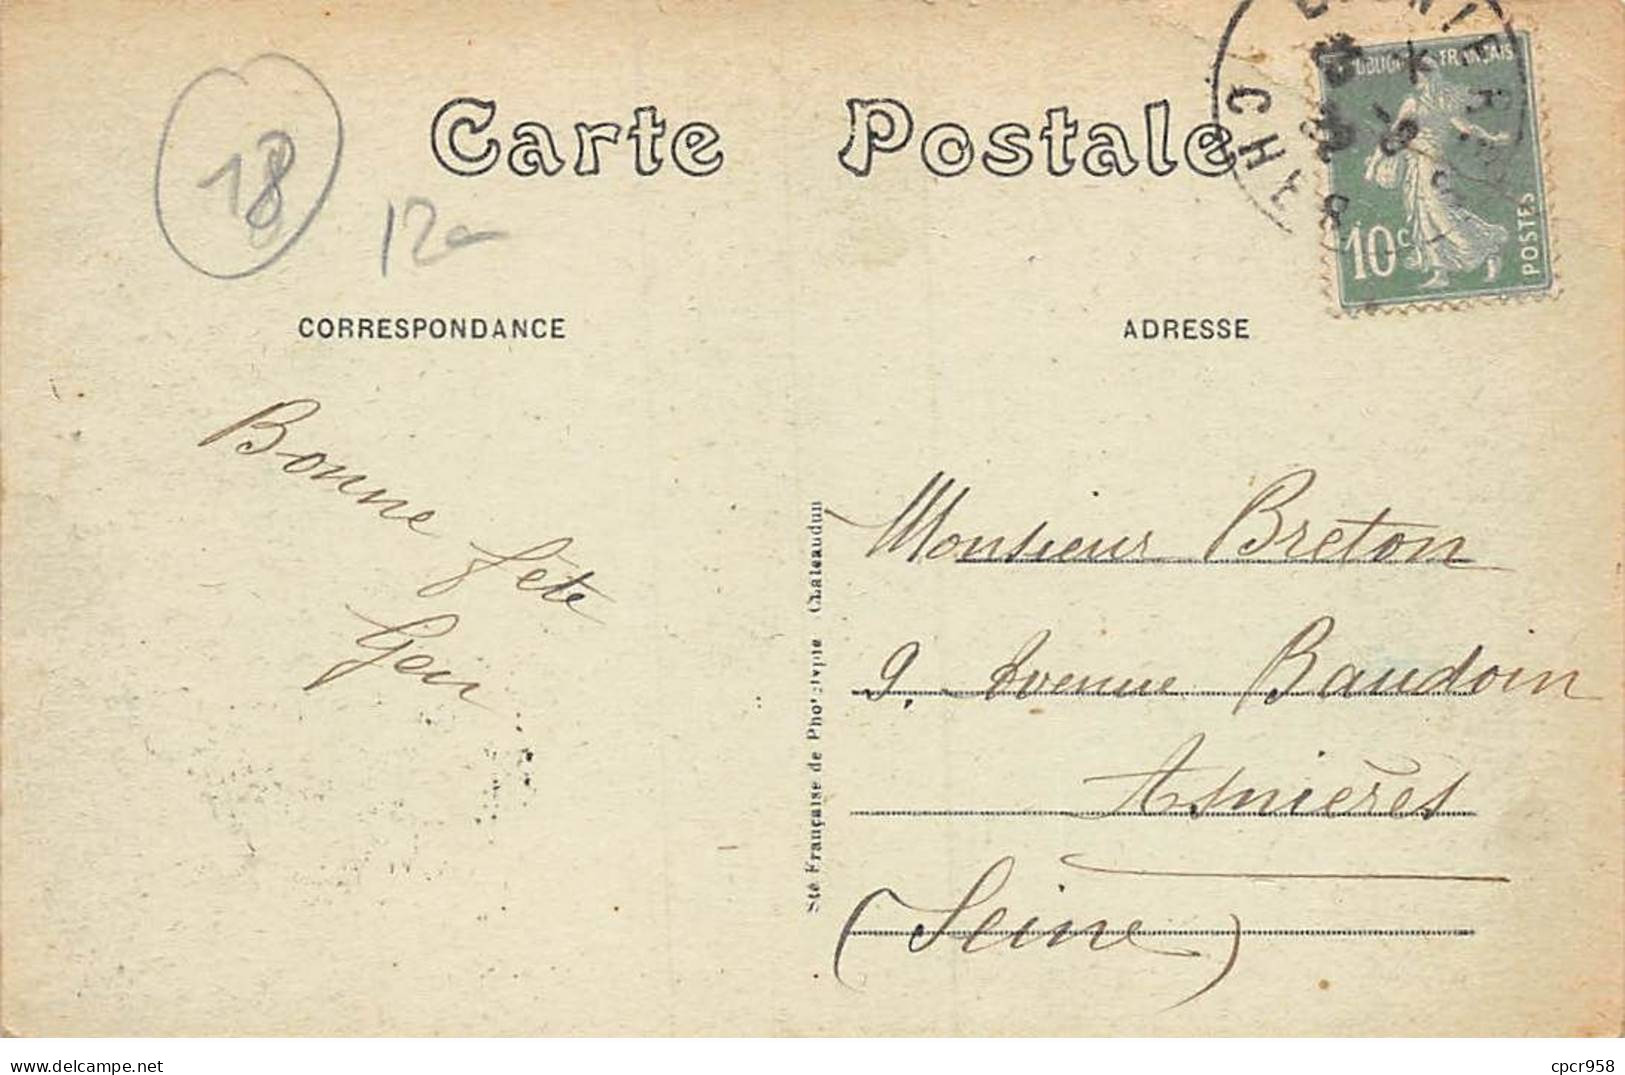 Carte Postale
18
12
CHER
FRANÇAISE
10c
POSTES
CORRESPONDANCE
ADRESSE
Bonne
fête
Gen
Sté Française de Phototypie Chateaudun
Monsieur Breton
9. Avenue Baudoin
Asnières
(Seine)
delcampe.net
cpcr958